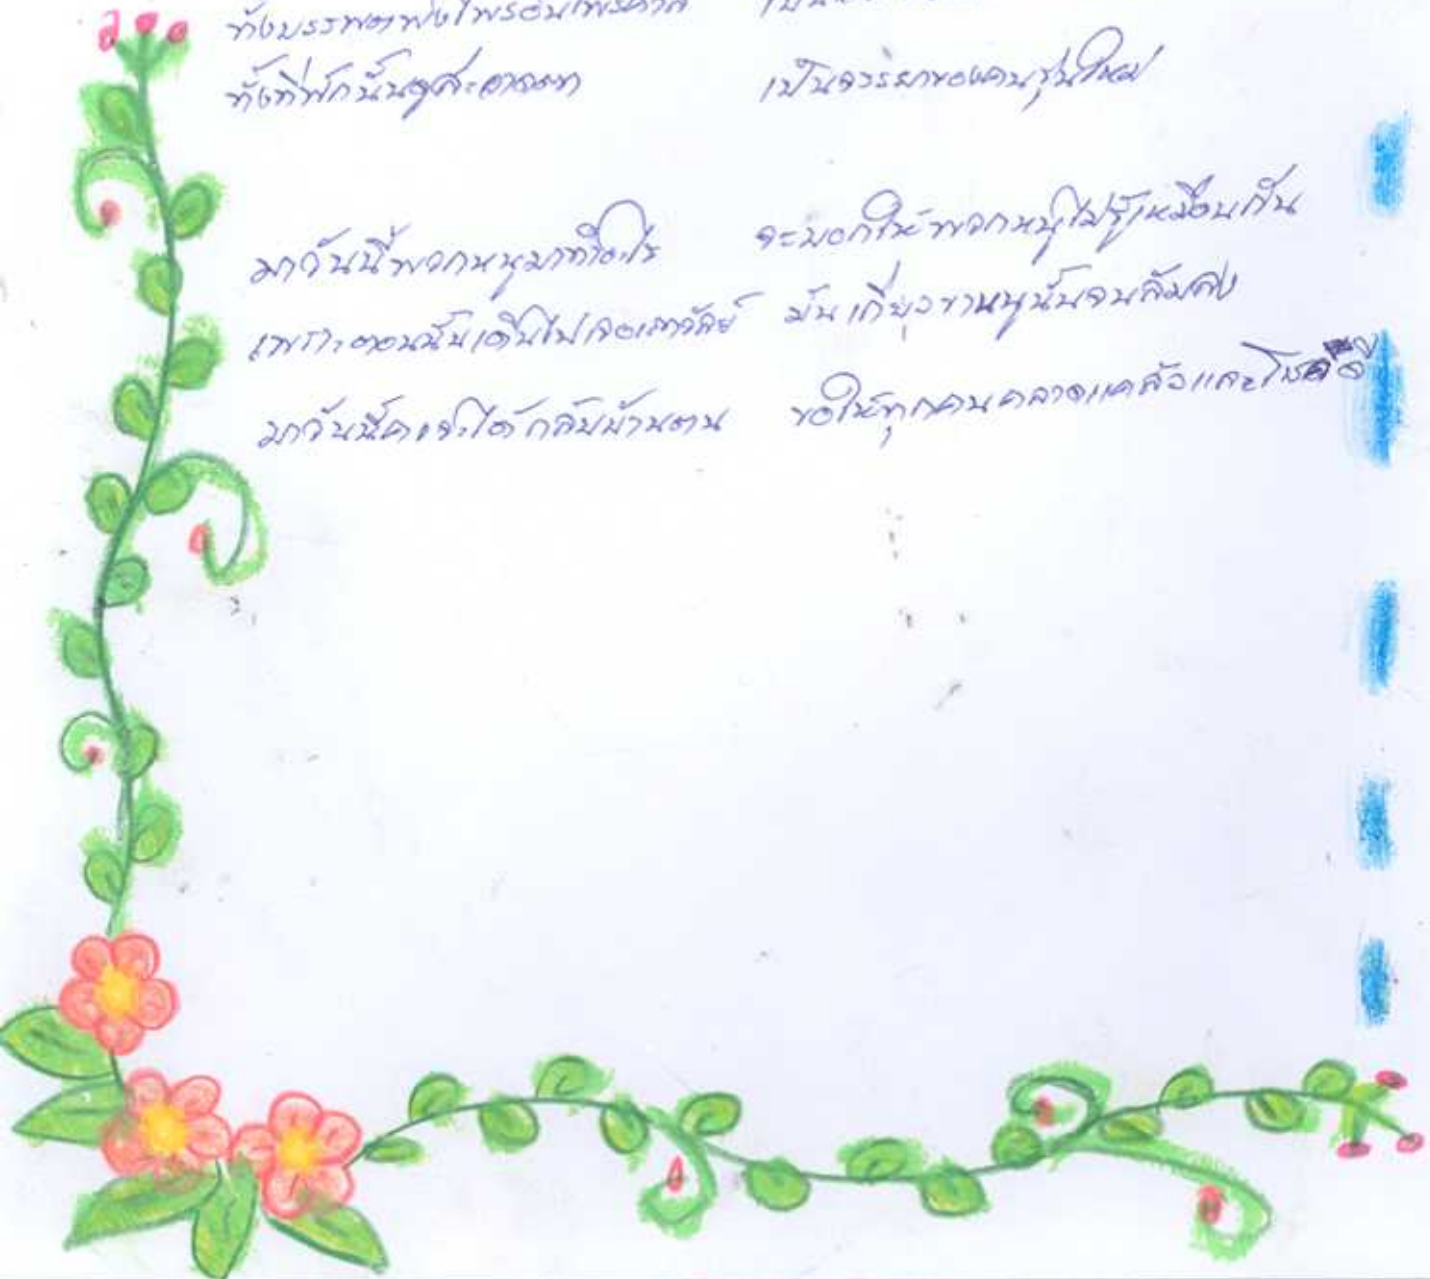 ทั้งบรรพตพงไพรอันไพศาล เป็น
ทั้งที่พักนั้นดูสะอาดตา เป็นจรรยาของคนรุ่นใหม่
มาวันนี้พวกหนูมาทำอะไร จะบอกให้พวกหนูไม่รู้เหมือนกัน
เพราะตอนนั้นเดินไปเจอเถาวัลย์ มันเกี่ยวขาหนูนั้นจนล้มลง
มาวันนี้คงจะได้กลับบ้านตน ขอให้ทุกคนคลาดแคล้วและโชคดี